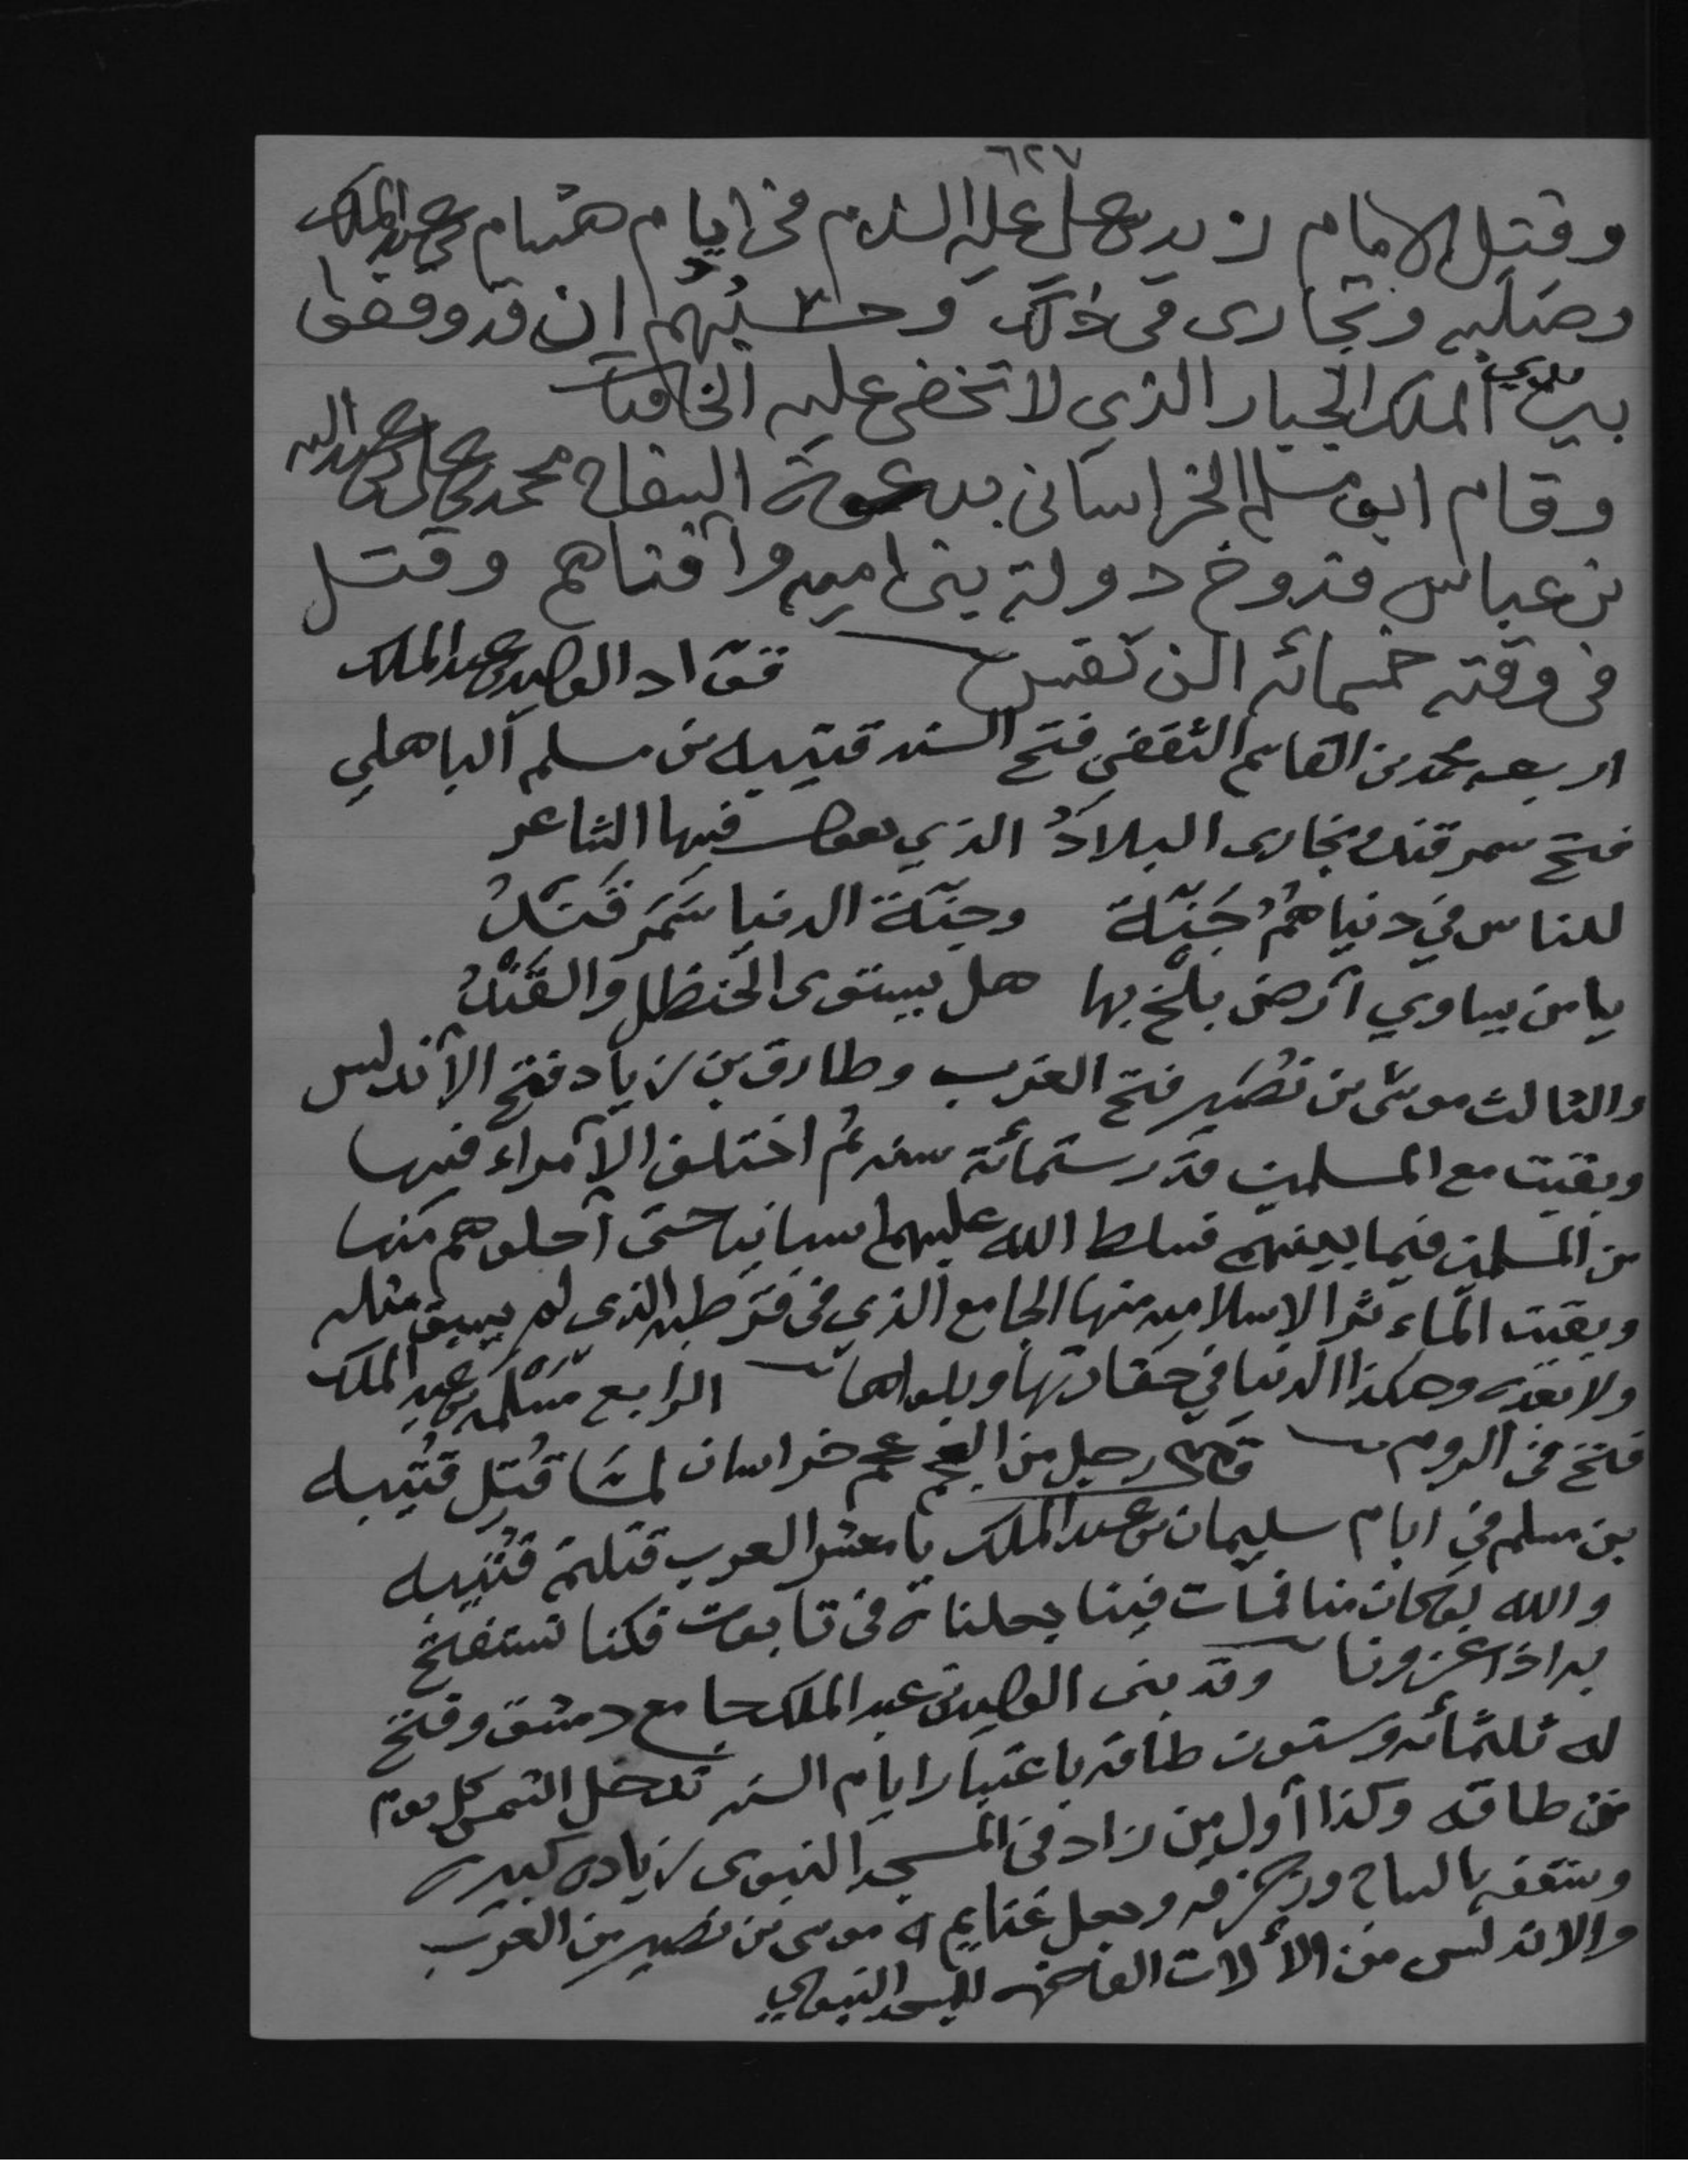 ٦٢٧
وقتل الامام زيد بن علي عليه السلام في ايام هشام بن عبدالملك
وصلبه وتجارى في ذلك وحسبهم ان قد وقفوا
بين يدي الملك الجبار الذي لا تخفى عليه الخافيات
وقام ابو مسلم الخراساني بدعوة السفاح محمد بن علي بن عبدالله
بن عباس فدوخ دولة بني اميه وافناهم وقتل
في وقته خمسمائه الف نفس قواد الوليد بن عبدالملك
اربعه محمد بن القاسم الثقفي فتح السند قتيبه بن مسلم الباهلي
فتح سمرقند وبخارى البلاد الذي يقول فيها الشاعر
للناس في دنياهم جَنّة وجنّة الدنيا سَمَرقَندُ
يا من يساوي أرض بلخ بها هل يستوى الحنظل والقَندُ
والثالث موسى بن نصير فتح الغرب وطارق بن زياد فتح الأندلس
وبقيت مع المسلمين قدر ستمائة سنه ثم اختلف الأمراء فيها
من المسلمين فيما بينهم فسلط الله عليهم اسبانيا حتى أجلوهم منها
وبقيت المآثر الاسلاميه منها الجامع الذي في قرطبه الذى لم يسبق مثله
ولا بعده وهكذا الدنيا في حقارتها الرابع مَسْلمه بن عبد الملك
فتح في الروم قال رجل من العجم عجم خراسان لمّا قُتِل قتيبه
بن مسلم في ايام سليمان بن عبدالملك يا معشر العرب قتلتم قتيبه
والله لو كان منا فمات فينا لجعلناه في تابوت فكنا نستفتح
به اذا غزونا وقد بنى الوليد بن عبد الملك جامع دمشق وفتح
له ثلثمائه وستون طاقه باعتبار ايام السنه تدخل الشمس كل يوم
من طاقه وكذا أول من زاد في المسجد النبوى زياده كبيره
وسقفه بالساج وزخرفه وجعل غنايم موسى بن نصير من الغرب
والاندلس من الألات الفاخره للمسجد النبوي